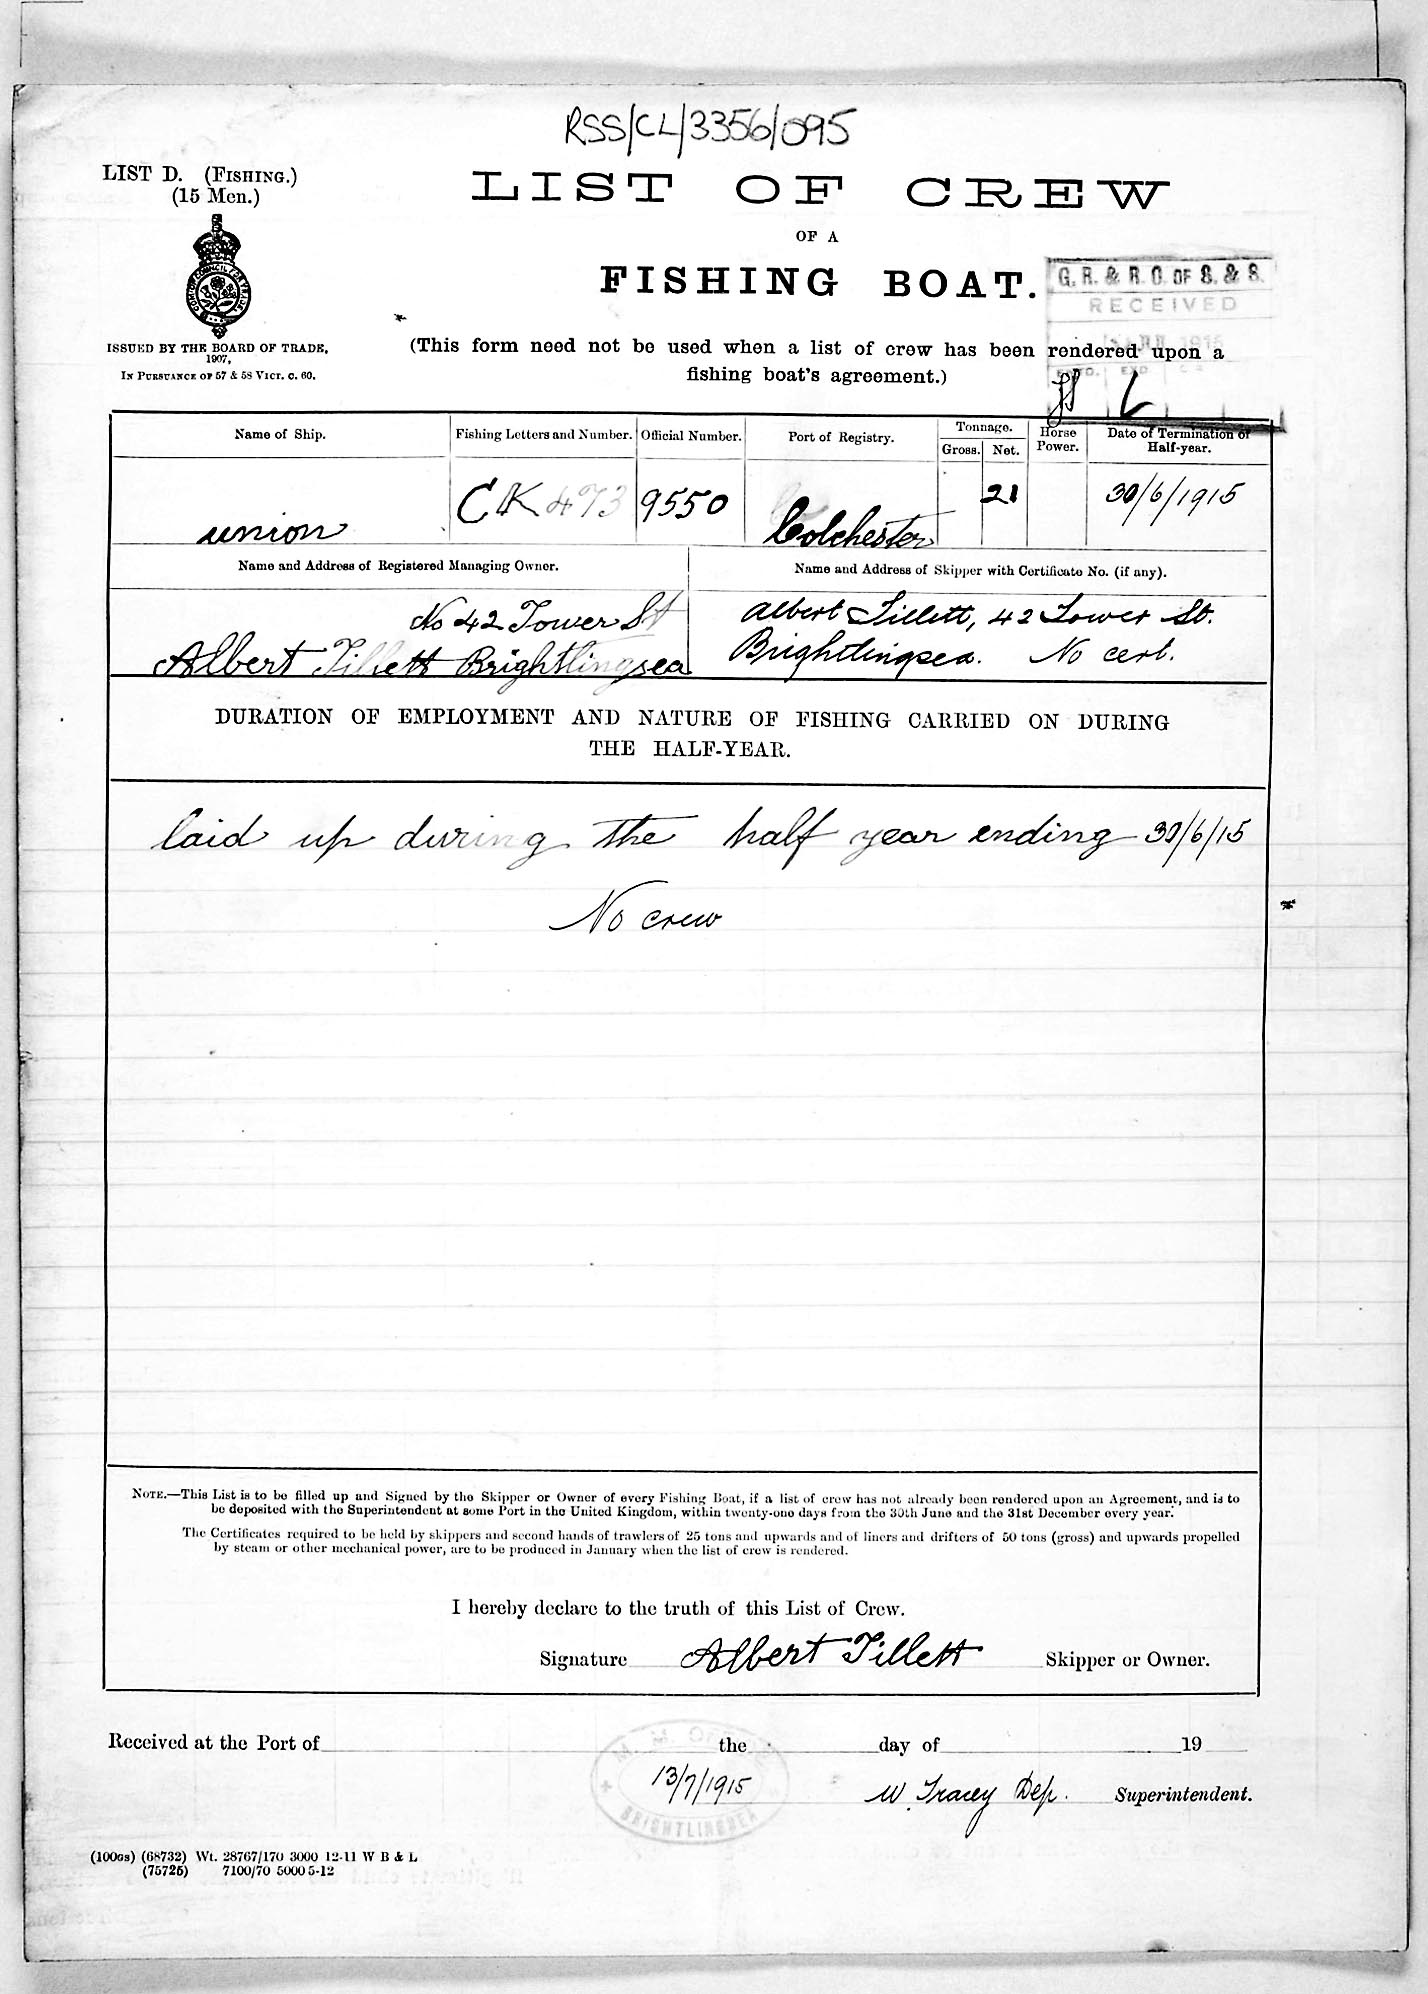 RSS/CL/3356/095
LIST D. (FISHING.)
(15 Men.)
LIST OF CREW
OF A
FISHING BOAT.
G. R. & R. O. OF S. & S.
RECEIVED
ISSUED BY THE BOARD OF TRADE,
1907,
IN PURSUANCE OF 57 & 58 VICT. C. 60.
(This form need not be used when a list of crew has been rendered upon a
fishing boat's agreement.)
Name of Ship. Fishing Letters and Number. Official Number. Port of Registry. Tonnage. Gross. Net. Horse Power. Date of Termination of Half-year.
union CK 473 9550 Colchester 21 30/6/1915
Name and Address of Registered Managing Owner. Name and Address of Skipper with Certificate No. (if any).
No 42 Tower St
Albert Tillett Brightlingsea
Albert Tillett, 42 Tower St.
Brightlingsea. No cert.
DURATION OF EMPLOYMENT AND NATURE OF FISHING CARRIED ON DURING
THE HALF-YEAR.
laid up during the half year ending 30/6/15
No crew
NOTE.—This List is to be filled up and Signed by the Skipper or Owner of every Fishing Boat, if a list of crew has not already been rendered upon an Agreement, and is to
be deposited with the Superintendent at some Port in the United Kingdom, within twenty-one days from the 30th June and the 31st December every year.
The Certificates required to be held by skippers and second hands of trawlers of 25 tons and upwards and of liners and drifters of 50 tons (gross) and upwards propelled
by steam or other mechanical power, are to be produced in January when the list of crew is rendered.
I hereby declare to the truth of this List of Crew.
Signature Albert Tillett Skipper or Owner.
Received at the Port of the day of 19
M. M. OFFICE
13/7/1915 W. Tracey Dep. Superintendent.
BRIGHTLINGSEA
(100gs) (68732) Wt. 28767/170 3000 12-11 W B & L
(75725) 7100/70 5000 5-12